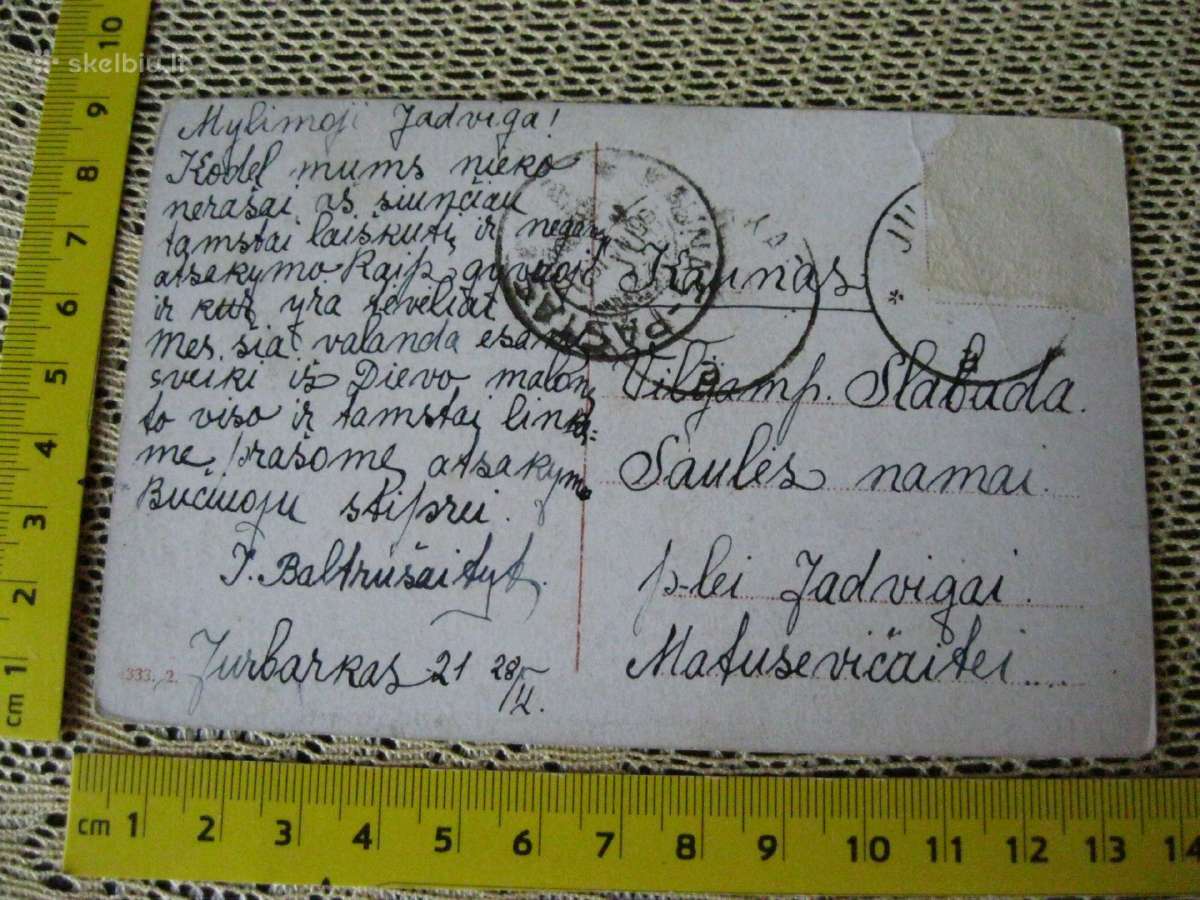 skelbiu.lt
Mylimoji Jadvyga!
Kodel mums nieko
nerašai, aš siunčiau
tamstai laiškutį ir negaunu
atsakymo Kaip gyvuoji
ir kur yra
mes šia valanda esam
sveiki iš Dievo malonę
to viso ir tamstai linki=
me, prašome atsakymo
Bučiuoju stiprei.
J. Baltrušaityt.
Jurbarkas 21 28/V
333. 2.
Kaunas
Viljamp. Slabada.
Saulės namai.
p-lei Jadvigai.
Matusevičaitei
KAUNAS-PAŠTAS
JU
cm 1 2 3 4 5 6 7 8 9 10
cm 1 2 3 4 5 6 7 8 9 10 11 12 13 14